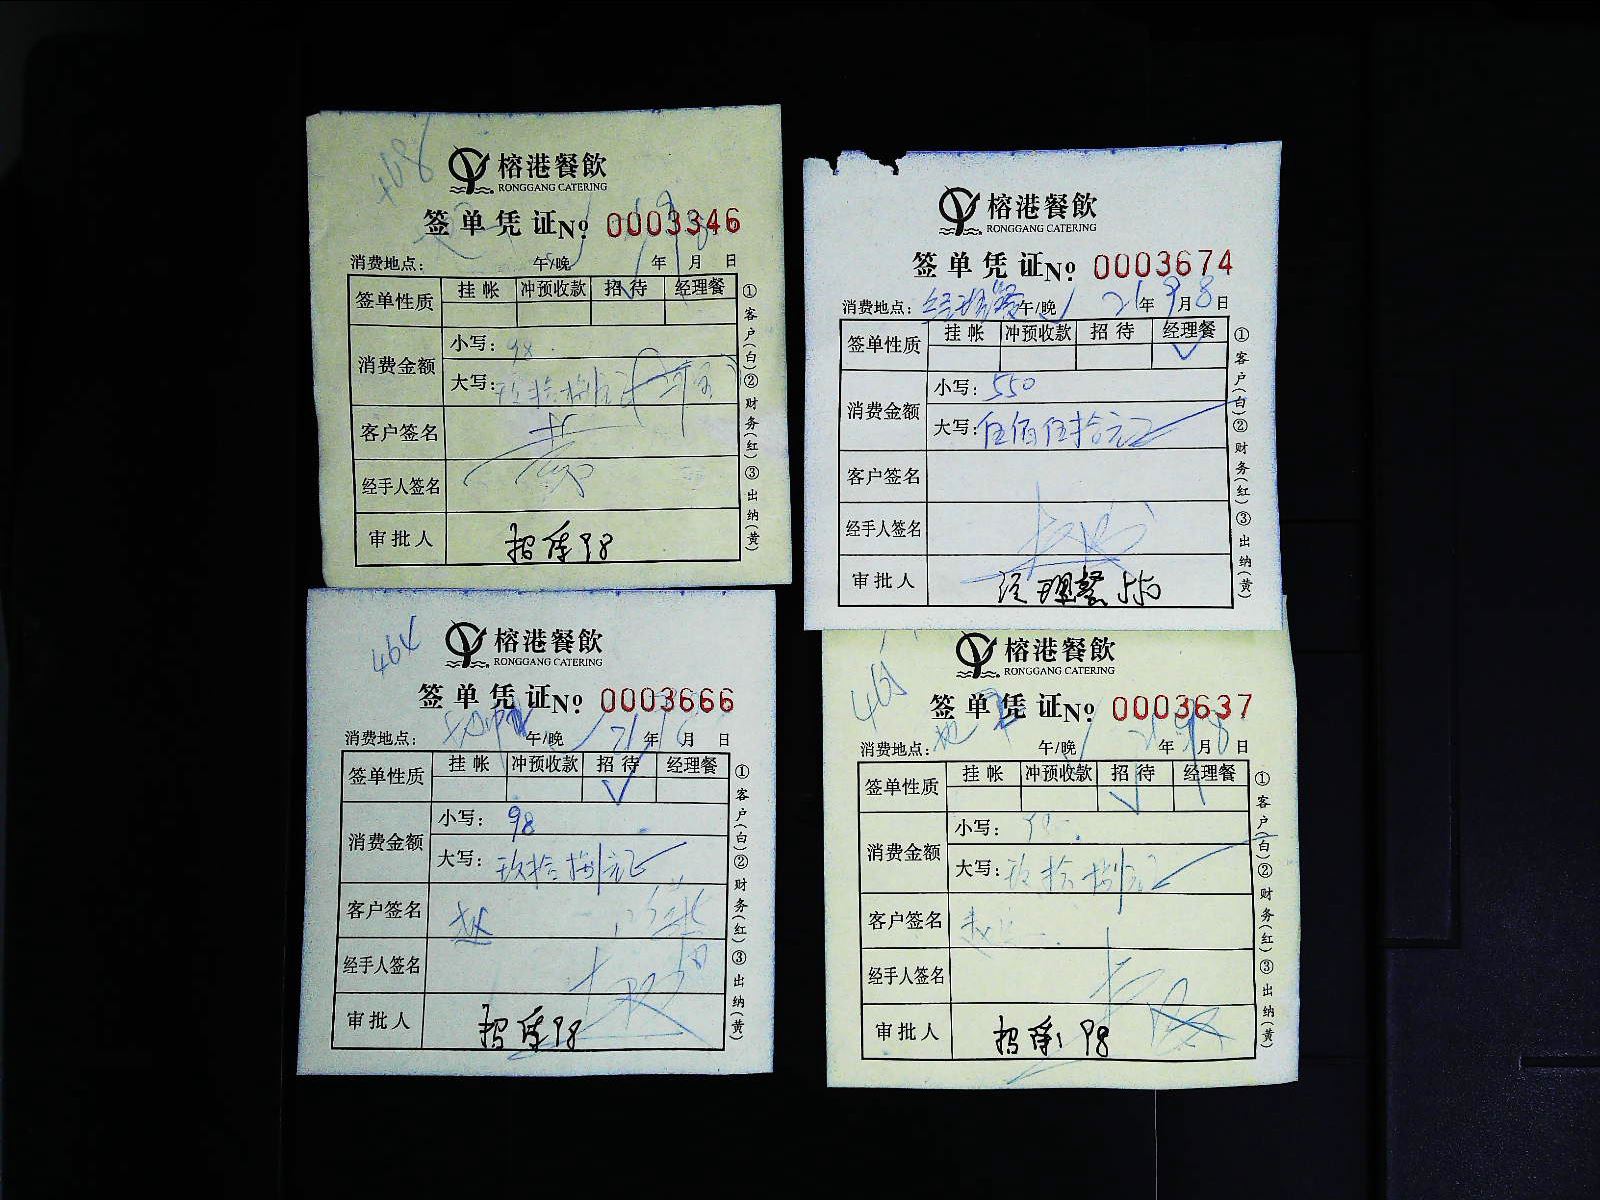 408
榕港餐飲
RONGGANG CATERING
签单凭证 No 0003346
消费地点: 午/晚 年 月 日
签单性质 挂帐 冲预收款 招待 经理餐
消费金额 小写: 98
大写: 玖拾捌元
客户签名
经手人签名
审批人 招待98
①客户(白)②财务(红)③出纳(黄)
榕港餐飲
RONGGANG CATERING
签单凭证 No 0003674
消费地点: 经理餐 午/晚 21年9月8日
签单性质 挂帐 冲预收款 招待 经理餐
消费金额 小写: 550
大写: 伍佰伍拾元正
客户签名
经手人签名
审批人 经理餐 550
①客户(白)②财务(红)③出纳(黄)
464
榕港餐飲
RONGGANG CATERING
签单凭证 No 0003666
消费地点: 午/晚 21年 月 日
签单性质 挂帐 冲预收款 招待 经理餐
消费金额 小写: 98
大写: 玖拾捌元正
客户签名 赵
经手人签名
审批人 招待98
①客户(白)②财务(红)③出纳(黄)
榕港餐飲
RONGGANG CATERING
签单凭证 No 0003637
消费地点: 午/晚 21年9月8日
签单性质 挂帐 冲预收款 招待 经理餐
消费金额 小写: 98
大写: 玖拾捌元正
客户签名
经手人签名
审批人 招待 98
①客户(白)②财务(红)③出纳(黄)